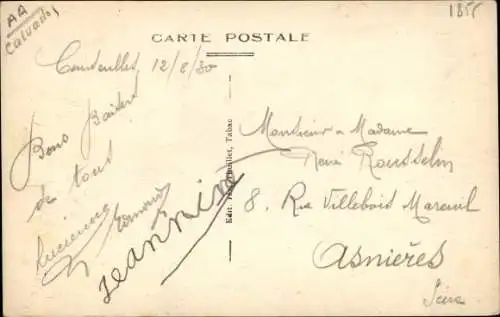 AA
Calvados
1855
CARTE POSTALE
Courseulles 12/8/30
Bons Baisers
de tous
Lucienne
Jeannine
Edit. Tabac
Monsieur & Madame
René Rousselin
8. Rue Villebois Mareuil
Asnières
Seine